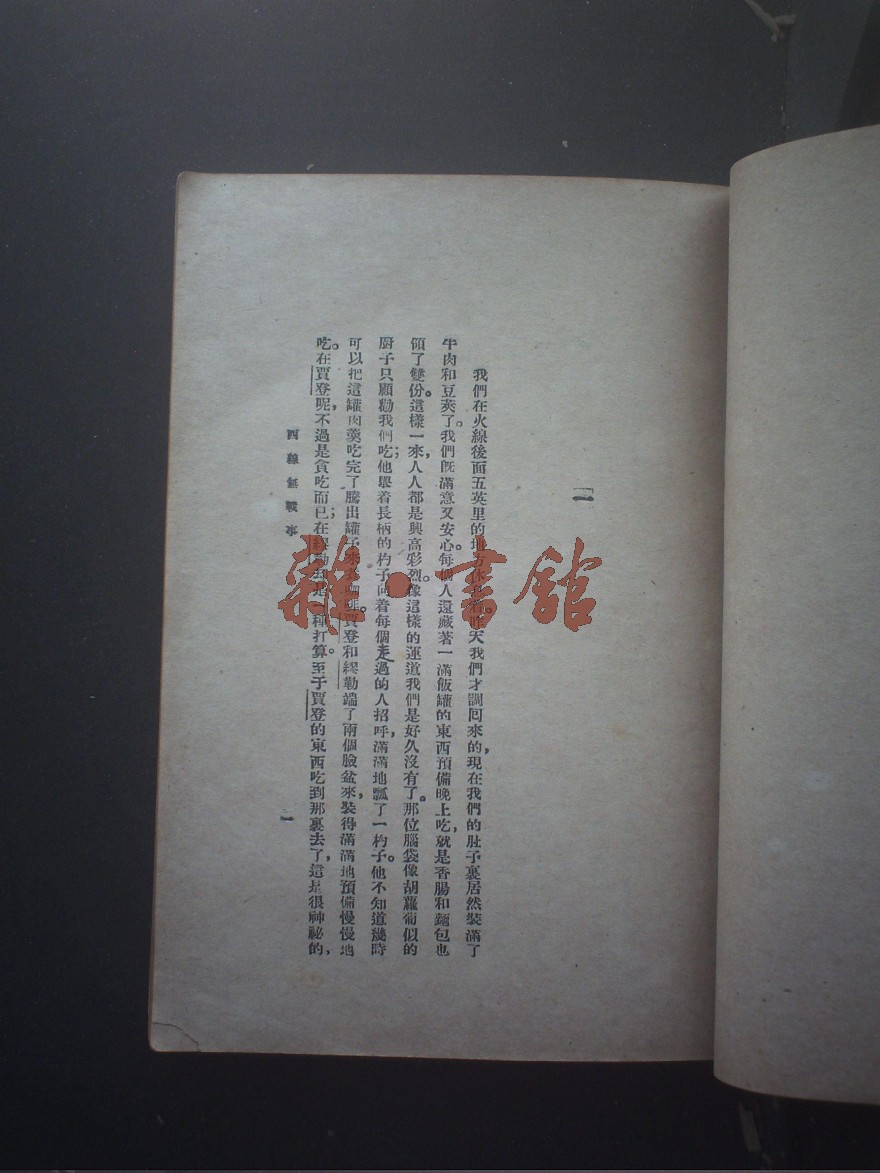 一
我們在火線後面五英里的地方休息着。昨天我們才調回來的，現在我們的肚子裏居然裝滿了
牛肉和豆莢了。我們旣滿意又安心。每個人還藏著一滿飯罐的東西預備晚上吃，就是香腸和麵包也
領了雙份。這樣一來，人人都是興高彩烈。像這樣的運道我們是好久沒有了。那位腦袋像胡蘿蔔似的
廚子只顧勸我們吃；他舉着長柄的杓子向着每個走過的人招呼，滿滿地瓢了一杓子。他不知道幾時
可以把這罐肉羹吃完了騰出罐子來弄咖啡。賈登和繆勒端了兩個臉盆來，裝得滿滿地預備慢慢地
吃。在賈登呢，不過是貪吃而已；在繆勒却是一種打算。至于賈登的東西吃到那裏去了，這是很神祕的，
西線無戰事
一
雜·書館